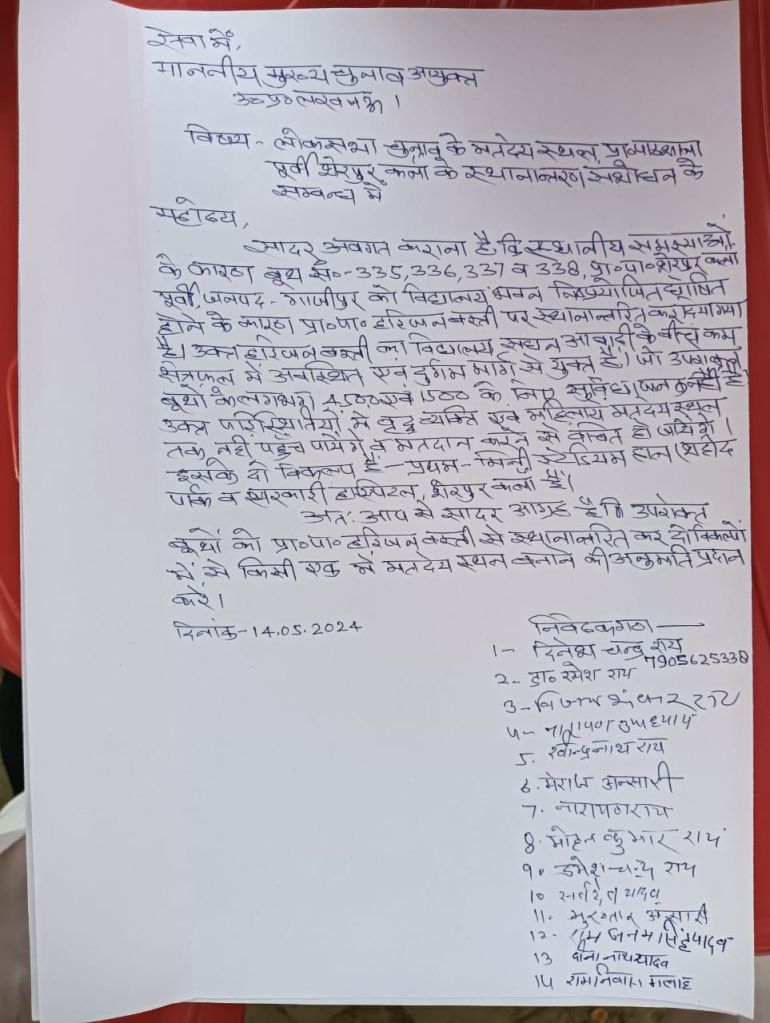 सेवा में,
माननीय मुख्य चुनाव आयुक्त
उ०प्र० लखनऊ।
विषय - लोकसभा चुनाव के मतदेय स्थल, प्रा०पाठशाला
पूर्वी शेरपुर कलां के स्थानान्तरण संशोधन के
सम्बन्ध में
महोदय,
सादर अवगत कराना है कि स्थानीय समस्याओं
के कारण बूथ सं०-335,336,337 व 338, प्रा०पा०शेरपुर कलां
पूर्वी, जनपद- गाजीपुर को विद्यालय भवन निष्प्रयोजित घोषित
होने के कारण प्रा०पा० हरिजन बस्ती पर स्थानान्तरित कर दिया गया
है। उक्त हरिजन बस्ती का विद्यालय सघन आबादी के बीच कम
क्षेत्रफल में अवस्थित एवं दुर्गम मार्ग से युक्त है। जो उपरोक्त
बूथों के लगभग 4500 एवं 1500 के लिए सुविधाजनक नहीं है
उक्त परिस्थितियों में वृद्ध व्यक्ति एवं महिलायें मतदेय स्थल
तक नहीं पहुँच पायेंगे व मतदान करने से वंचित हो जायेंगे।
इसके दो विकल्प हैं - प्रथम- मिनी स्टेडियम हाल (शहीद
पार्क व सरकारी हास्पिटल, शेरपुर कलां है।
अतः आप से सादर आग्रह है कि उपरोक्त
बूथों को प्रा०पा० हरिजन बस्ती से स्थानान्तरित कर दो विकल्पों
में से किसी एक में मतदेय स्थल बनाने की अनुमति प्रदान
करें।
दिनांक-14.05.2024
निवेदकगण
1- दिनेश चन्द्र राय
7905625338
2- डा० रमेश राय
3- विजय शंकर राय
4- नारायण उपाध्याय
5. रवीन्द्रनाथ राय
6. मेराज अन्सारी
7. नारायण राय
8. मोहन कुमार राय
9. उमेश चन्द्र राय
10 यादव
11. मुख्तार अंसारी
12- राम जनम सिंह यादव
13 दीनानाथ यादव
14 रामनिवास मलाह